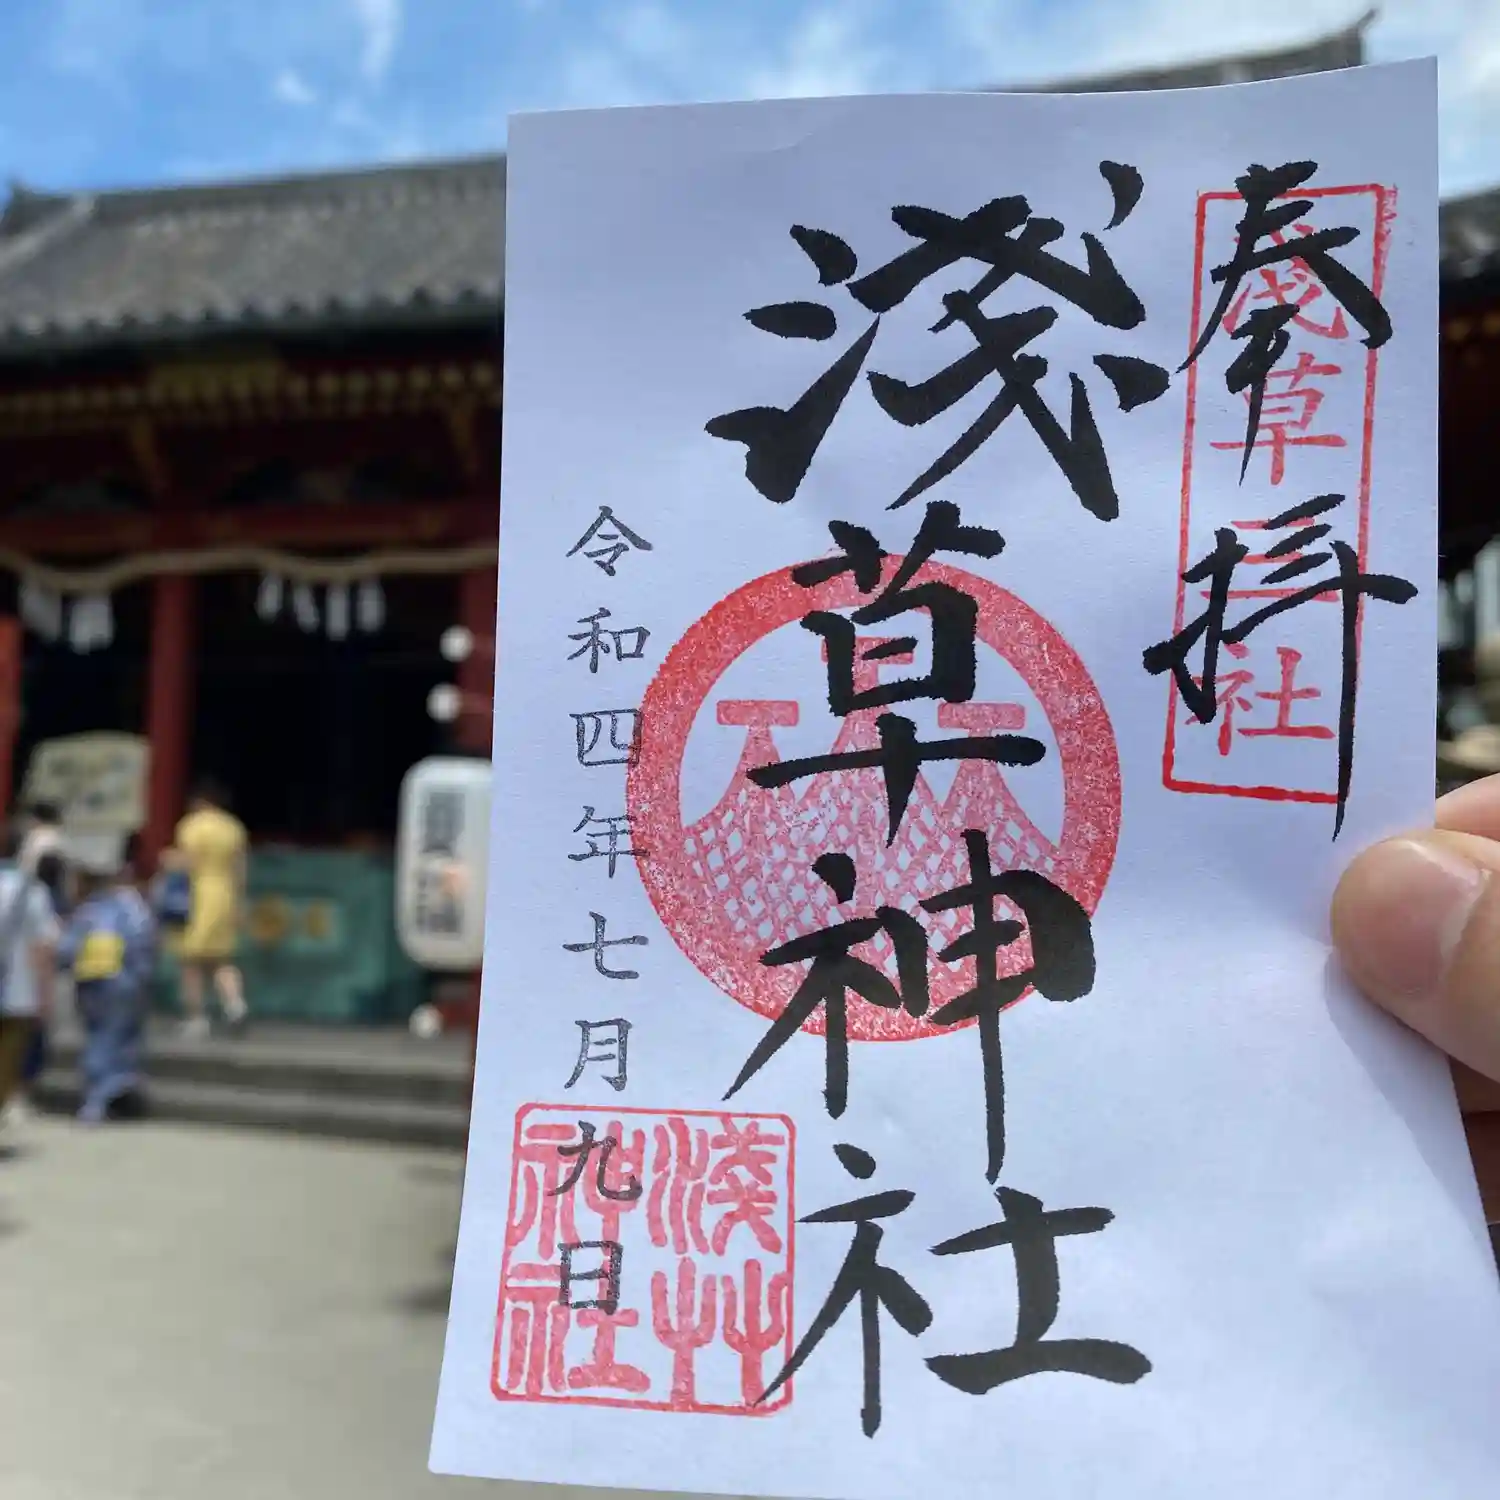 奉拝
浅草三社
淺草神社
令和四年七月九日
淺艸
神社